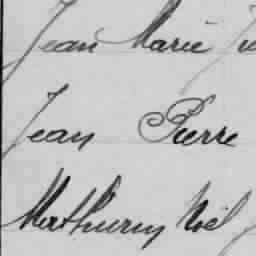 Jean Marie
Jean Pierre
Mathurin Noël